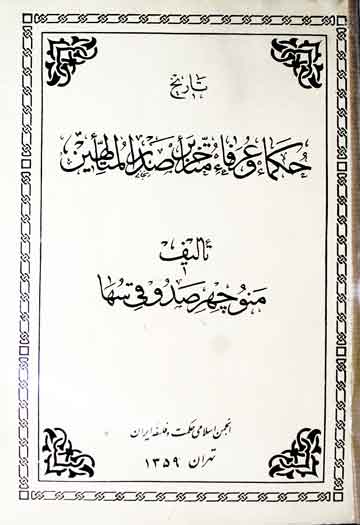 تاریخ
حکماء و عرفاء متأخر بر صدرالمتألهین
تألیف
منوچهر صدوقی سها
انجمن اسلامی حکمت و فلسفه ایران
تهران ۱۳۵۹